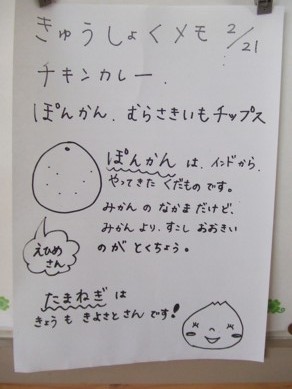 きゅうしょくメモ 2/21
チキンカレー.
ぽんかん. むらさきいもチップス
ぽんかん は、インドから、
やってきた くだものです。
みかん の なかまだけど、
みかん より、すこし おおきい
の が とくちょう。
えひめ
さん
たまねぎ は
きょう も きよさと さん です!